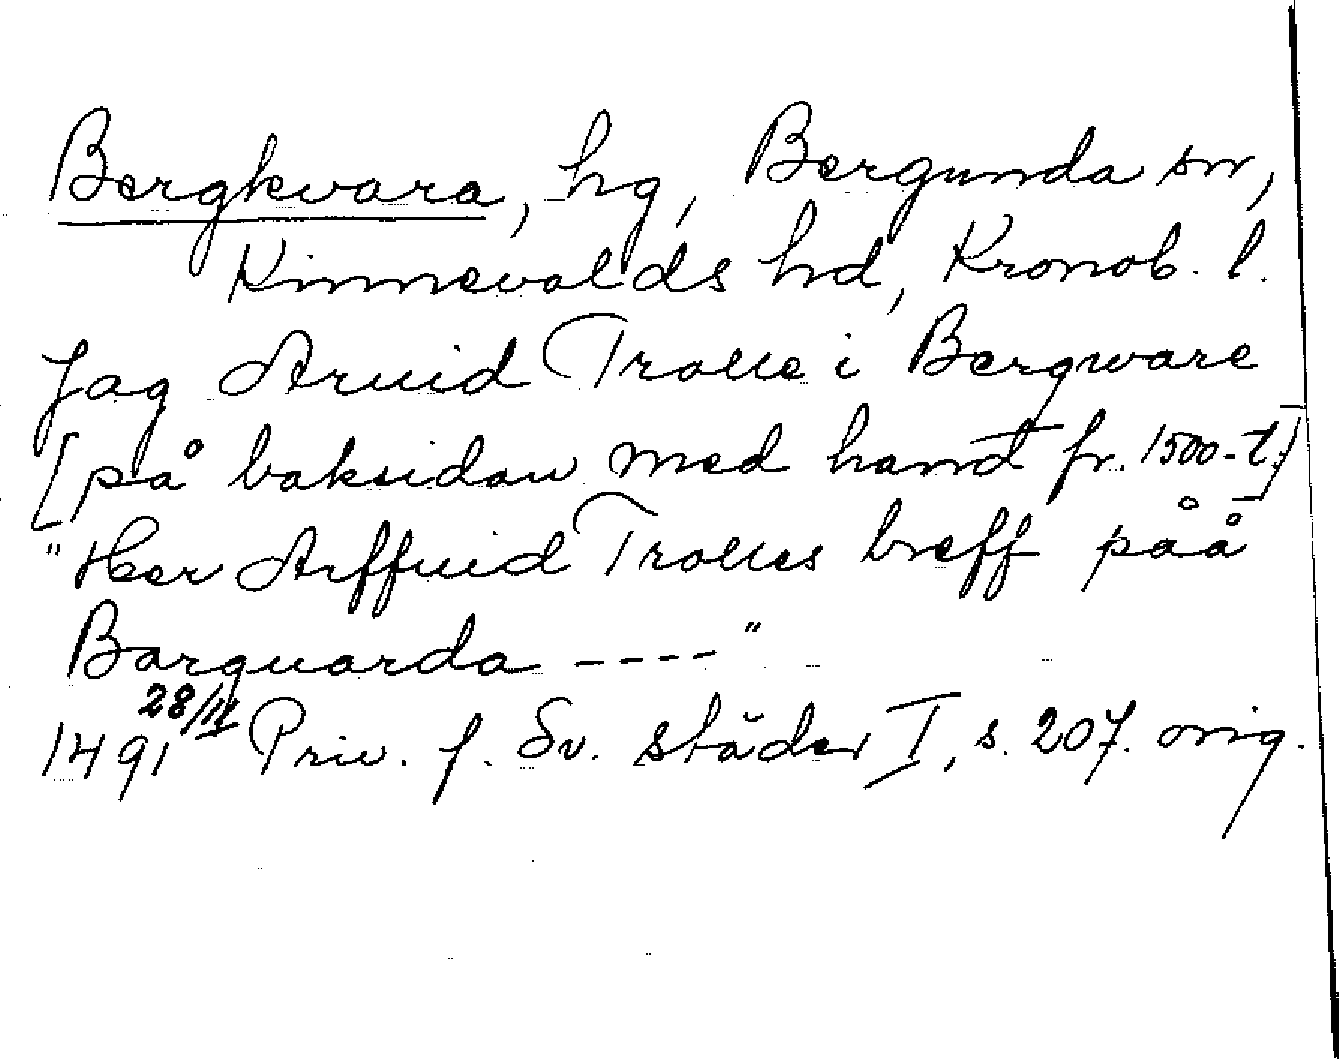 Bergkvara, hg, Bergunda sn,
Kinnevalds hd, Kronob. l.
Jag Aruid Trolle i Bergware
[på baksidan med hand fr. 1500-t.]
"Her Arffuid Trolles breff påå
Barquarda ----"
1491 28/II Priv. f. Sv. städer I, s. 207. orig.